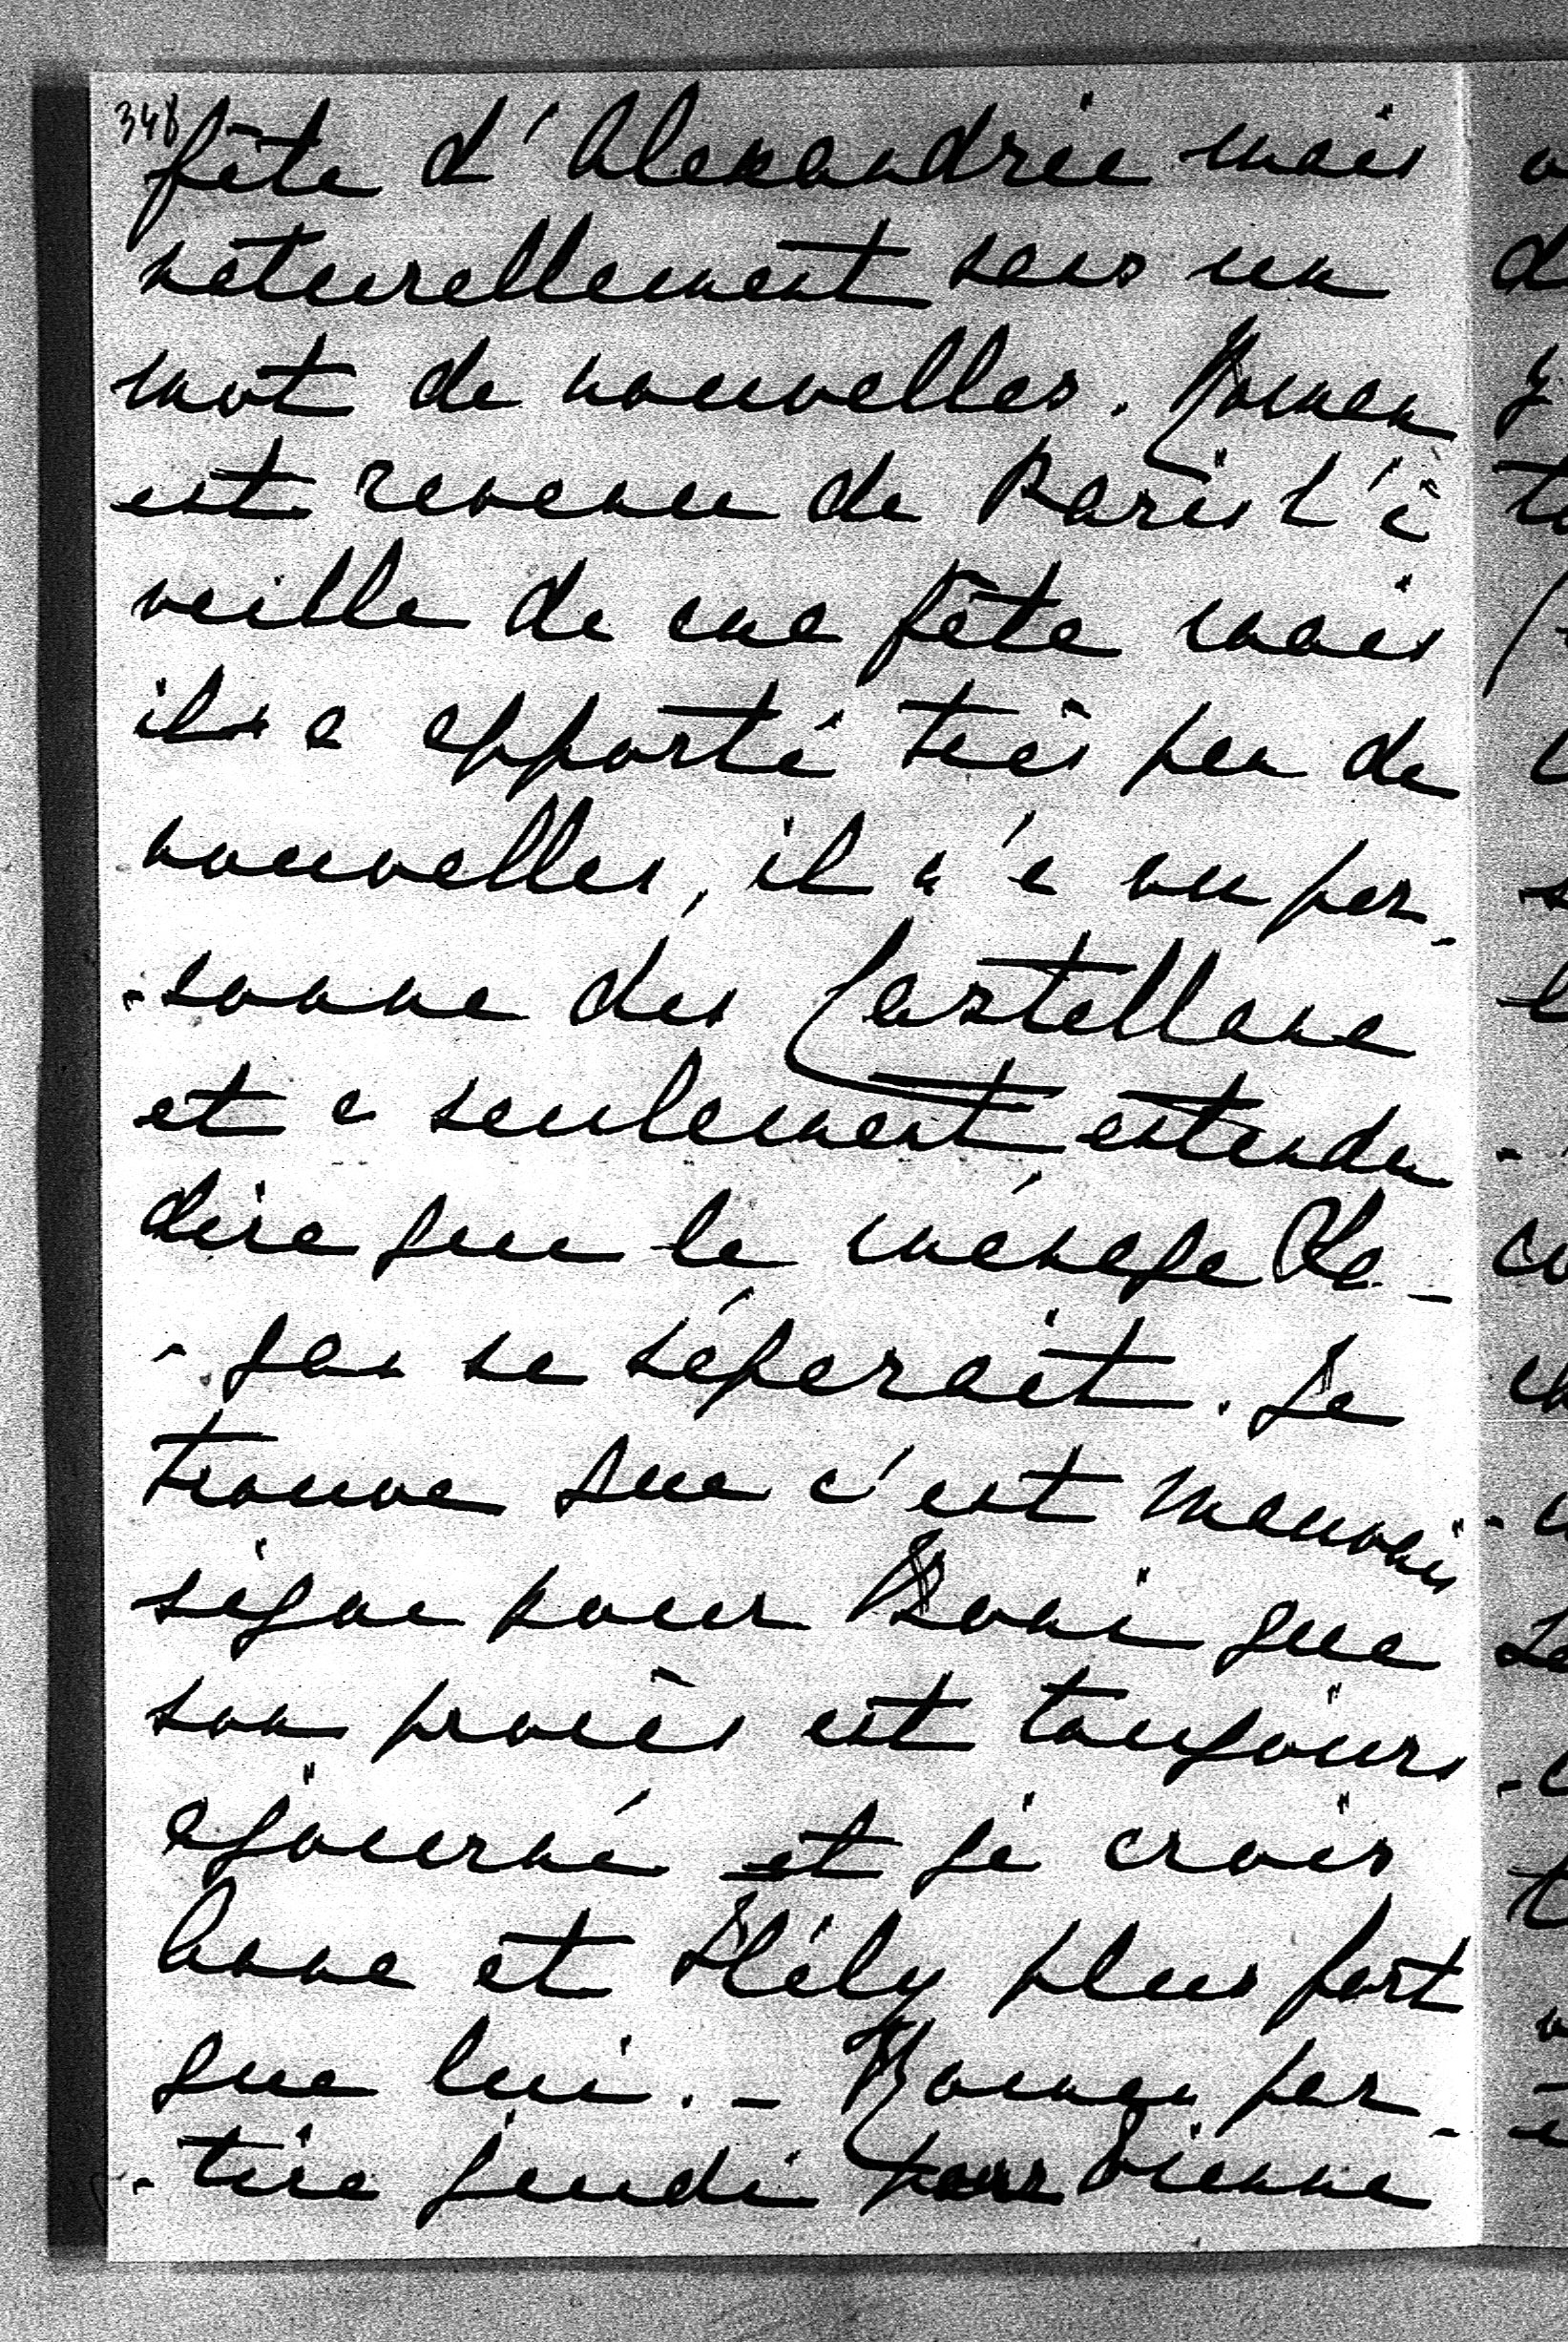 348
fête d'Alexandrie mais
naturellement sans un
mot de nouvelles. Roman
est revenu de Paris l'à
veille de ma fête mais
il a apporté très peu de
nouvelles, il n'a vu per-
-sonne des Castellane
et a seulement entendu
dire que le ménage Sa-
-gan se séparait. Je
trouve que c'est mauvais
signe pour Boni que
son procès est toujours
ajourné et je crois
Anna et Hély plus fort
que lui. – Roman par-
-tira jeudi pour Vienne